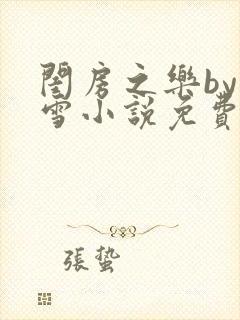 閨房之樂by
雪小説免費
張蟄